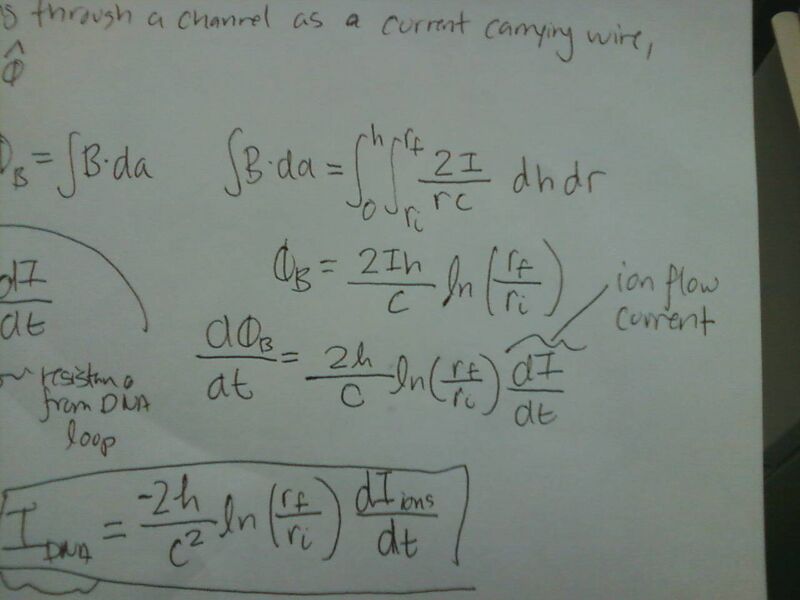 through a channel as a current carrying wire,
Φ̂
Φ_B = ∫B·da    ∫B·da = ∫_0^h ∫_{r_i}^{r_f} 2I/rc dhdr
Φ_B = 2Ih/c ln(r_f/r_i)
ion flow
current
dI/dt
dΦ_B/dt = 2h/c ln(r_f/r_i) dI/dt
resistan
from DNA
loop
I_DNA = -2h/c² ln(r_f/r_i) dI_ions/dt